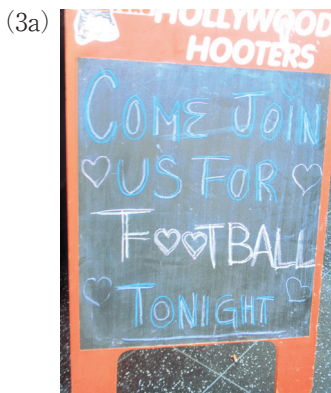 (3a)
HOLLYWOOD
HOOTERS
COME JOIN
US FOR
FOOTBALL
TONIGHT